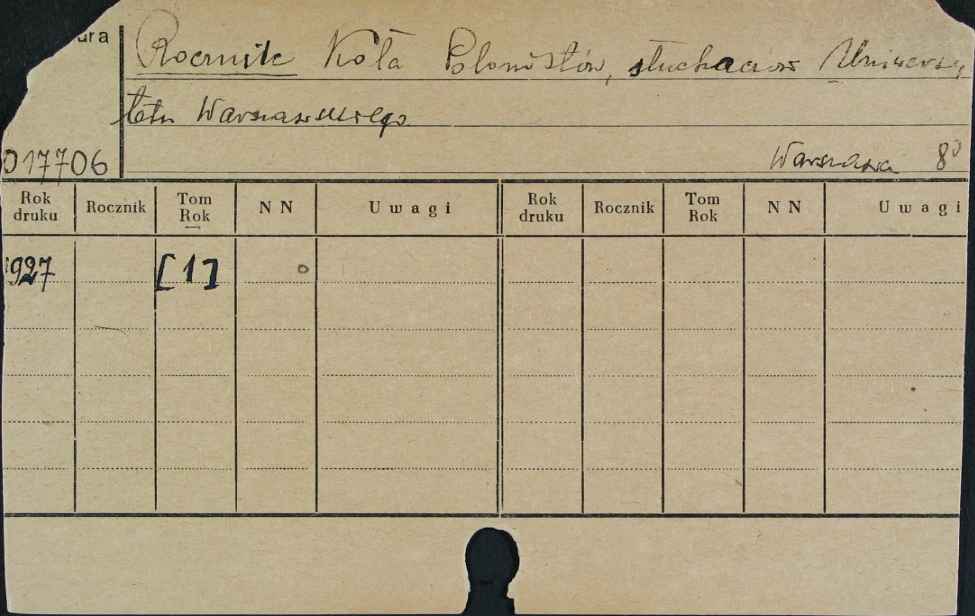 ura
Rocznik Koła Polonistów, słuchaczów Uniwersy
tetu Warszawskiego
017706
Warszawa 8⁰
Rok druku Rocznik Tom Rok NN Uwagi Rok druku Rocznik Tom Rok NN Uwagi
1927 [1]